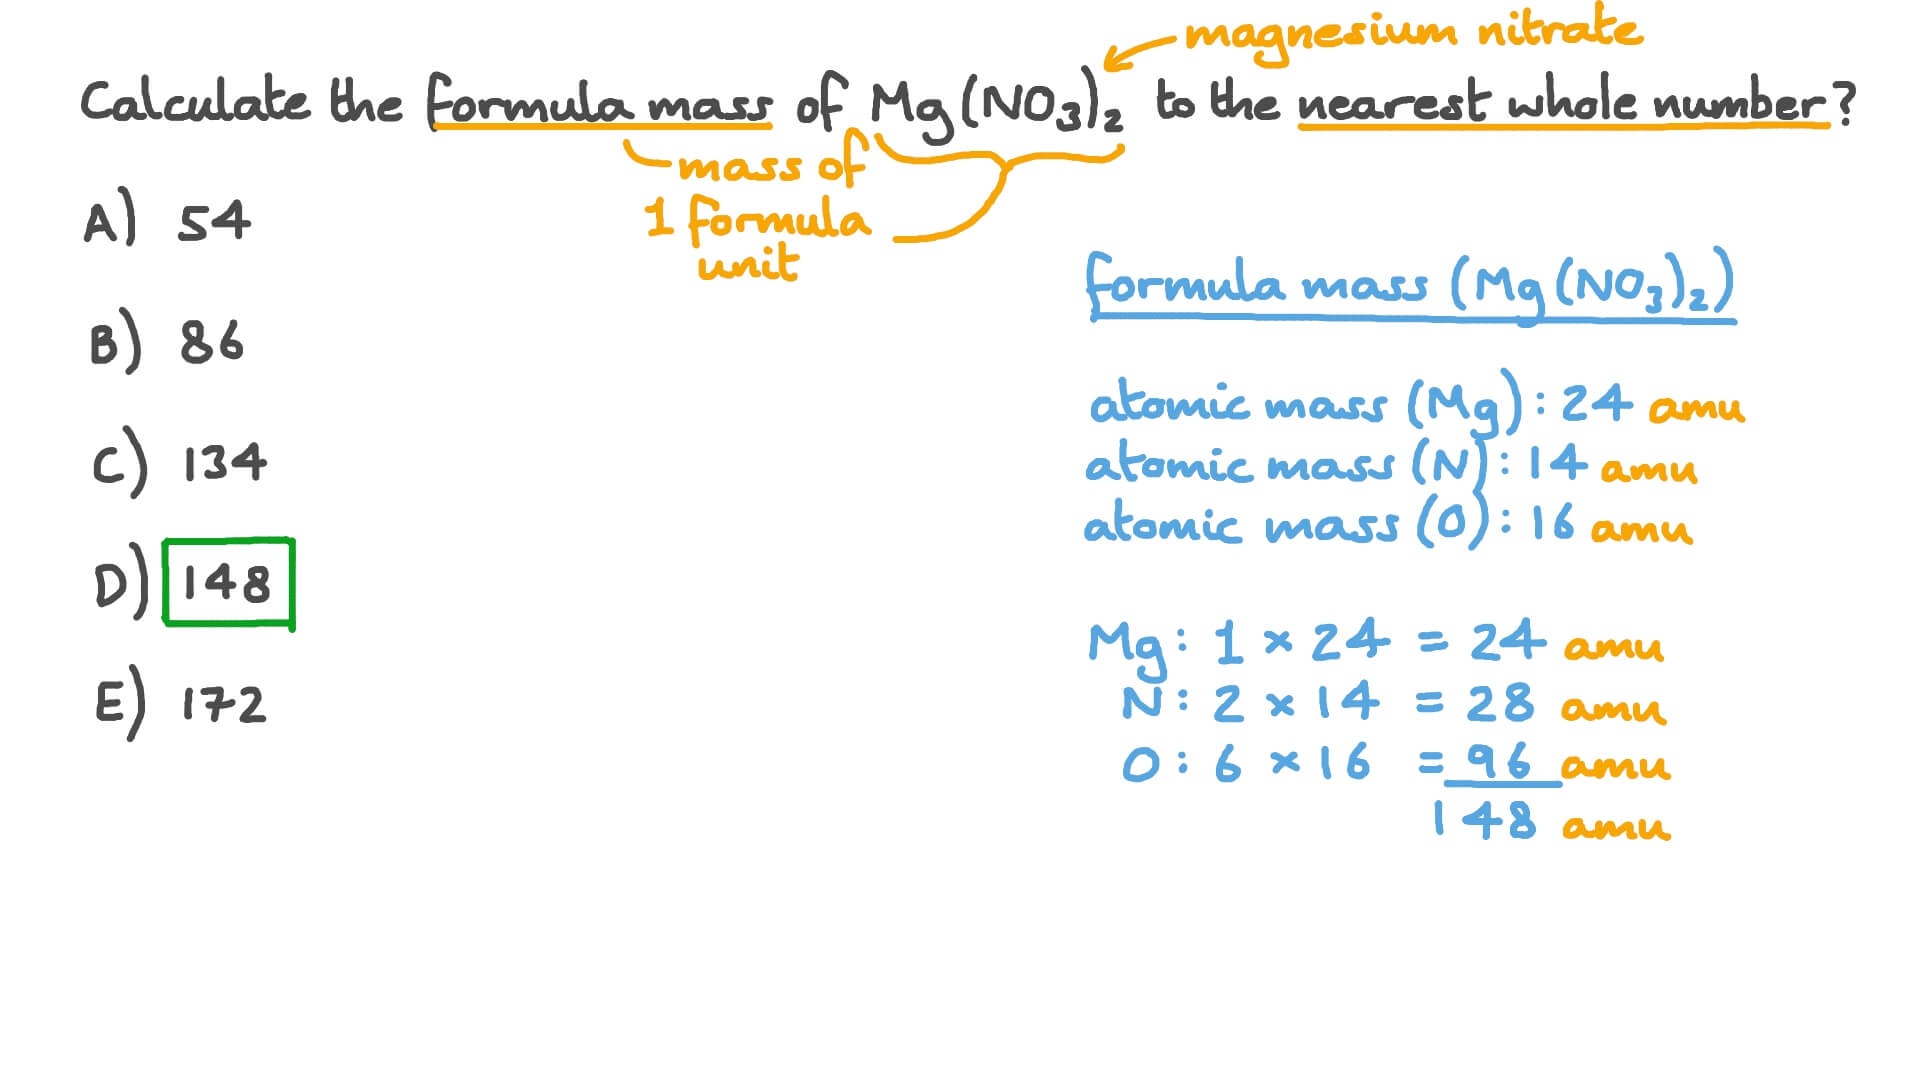 magnesium nitrate
Calculate the formula mass of Mg(NO₃)₂ to the nearest whole number?
mass of
1 formula
unit
A) 54
B) 86
C) 134
D) 148
E) 172
formula mass (Mg(NO₃)₂)
atomic mass (Mg): 24 amu
atomic mass (N): 14 amu
atomic mass (O): 16 amu
Mg: 1 × 24 = 24 amu
N: 2 × 14 = 28 amu
O: 6 × 16 = 96 amu
148 amu